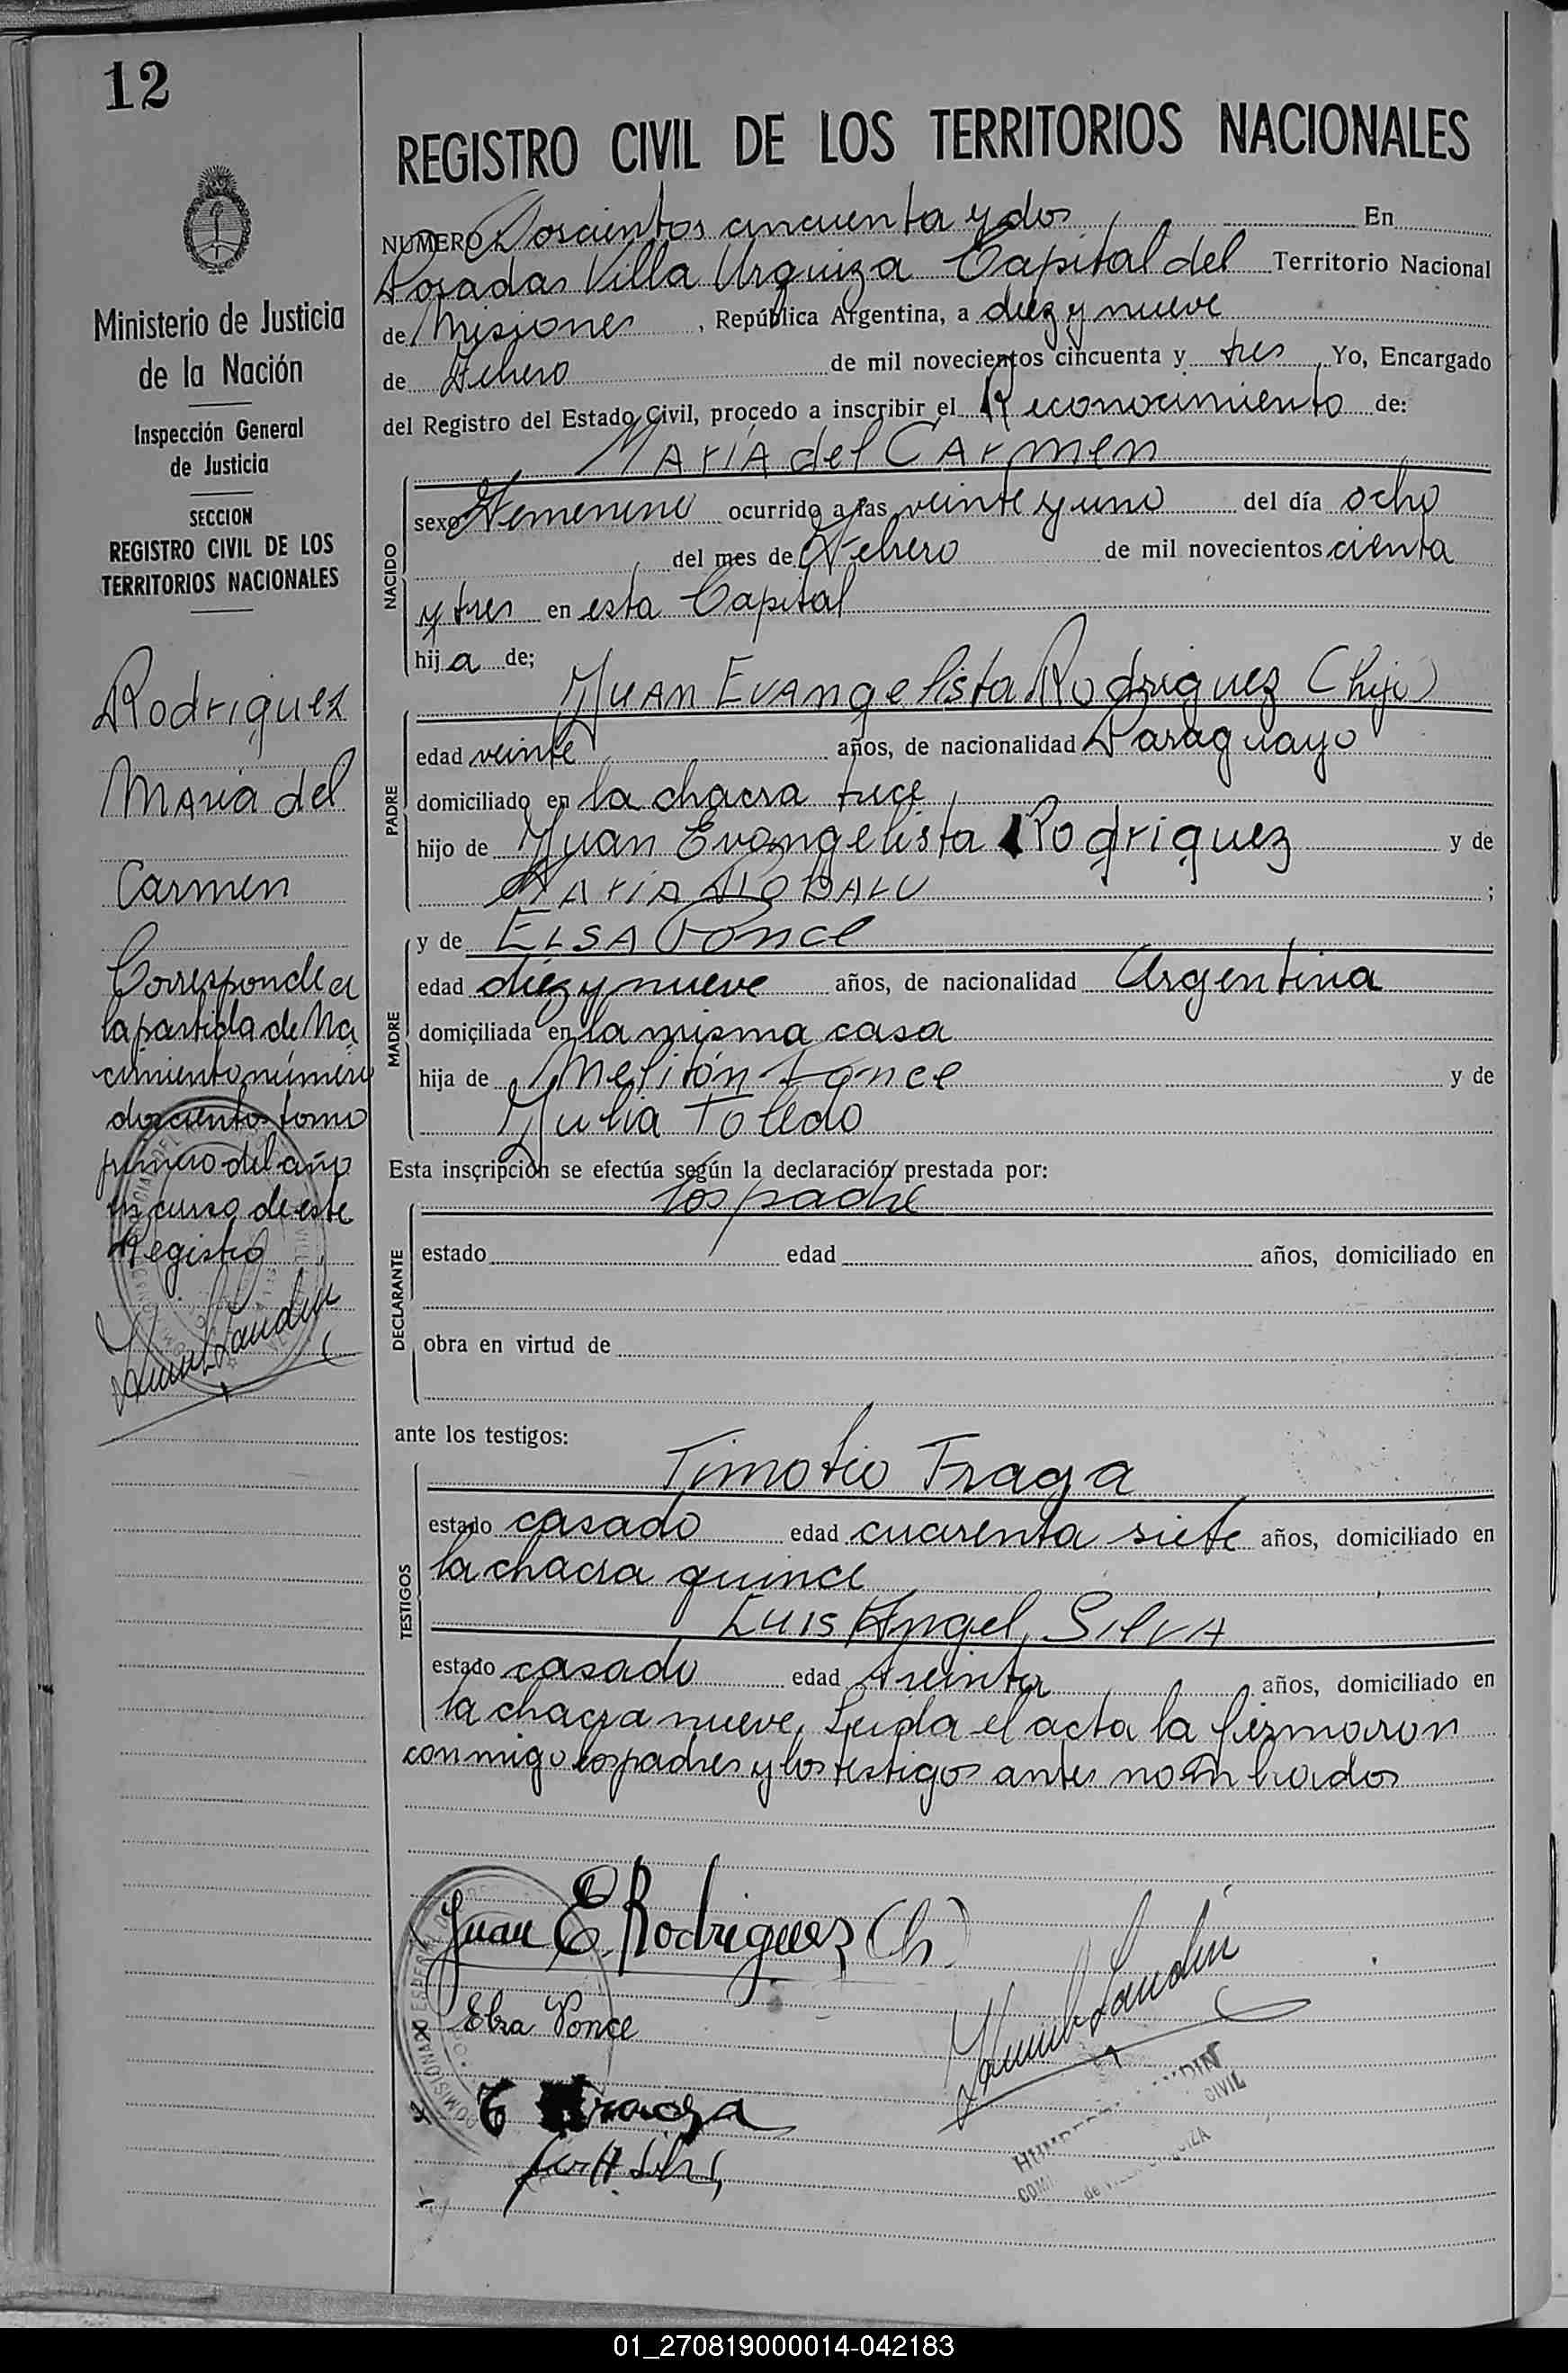 12
REGISTRO CIVIL DE LOS TERRITORIOS NACIONALES
NUMERO Doscientos cincuenta y dos En
Posadas Villa Urquiza Capital del Territorio Nacional
de Misiones, República Argentina, a diez y nueve
de Febrero de mil novecientos cincuenta y tres Yo, Encargado
del Registro del Estado Civil, procedo a inscribir el Reconocimiento de:
MARÍA del CARMEN
NACIDO
sexo Femenino ocurrido a las veinte y uno del día ocho
del mes de Febrero de mil novecientos cienta
y tres en esta Capital
hija de;
JUAN EVANgelista Rodriguez (hijo)
PADRE
edad veinte años, de nacionalidad Paraguayo
domiciliado en la chacra trece
hijo de Juan Evangelista Rodriguez y de
MARÍA ;
y de ELSA Ponce
MADRE
edad diez y nueve años, de nacionalidad Argentina
domiciliada en la misma casa
hija de Melitón Ponce y de
Julia Toledo
Esta inscripción se efectúa según la declaración prestada por:
los padre
DECLARANTE
estado edad años, domiciliado en
obra en virtud de
ante los testigos:
Timoteo Fraga
TESTIGOS
estado casado edad cuarenta siete años, domiciliado en
la chacra quince
LUIS Angel SILVA
estado casado edad treinta años, domiciliado en
la chacra nueve, Leida el acta la firmaron
conmigo los padres y los testigos antes nombrados
Juan E. Rodriguez (h)
Elsa Ponce
T Fraga
Ministerio de Justicia
de la Nación
Inspección General
de Justicia
SECCION
REGISTRO CIVIL DE LOS
TERRITORIOS NACIONALES
Rodriguez
María del
Carmen
Corresponde a
la partida de Na
cimiento número
doscientos tomo
primero del año
en curso de este
Registro
CIVIL
01_270819000014-042183